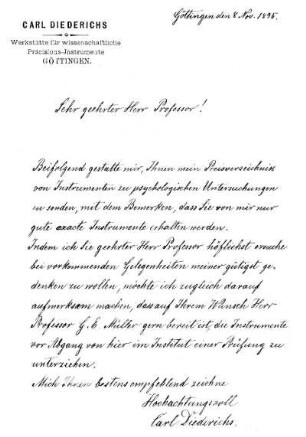 CARL DIEDERICHS
Werkstätte für wissenschaftliche
Präcisions-Instrumente
GÖTTINGEN.
Göttingen den 8. Nov. 1895.
Sehr geehrter Herr Professor!
Beifolgend gestatte mir, Ihnen mein Preisverzeichnis
von Instrumenten zu psychologischen Untersuchungen
zu senden, mit dem Bemerken, dass Sie von mir nur
gute exacte Instrumente erhalten werden.
Indem ich Sie geehrter Herr Professor höflichst ersuche
bei vorkommenden Gelegenheiten meiner gütigst ge-
denken zu wollen, möchte ich zugleich darauf
aufmerksam machen, dass auf Ihrem Wunsch Herr
Professor G. E. Müller gern bereit ist, die Instrumente
vor Abgang von hier im Institut einer Prüfung zu
unterziehen.
Mich Ihnen bestens empfehlend zeichne
Hochachtungsvoll
Carl Diederichs.